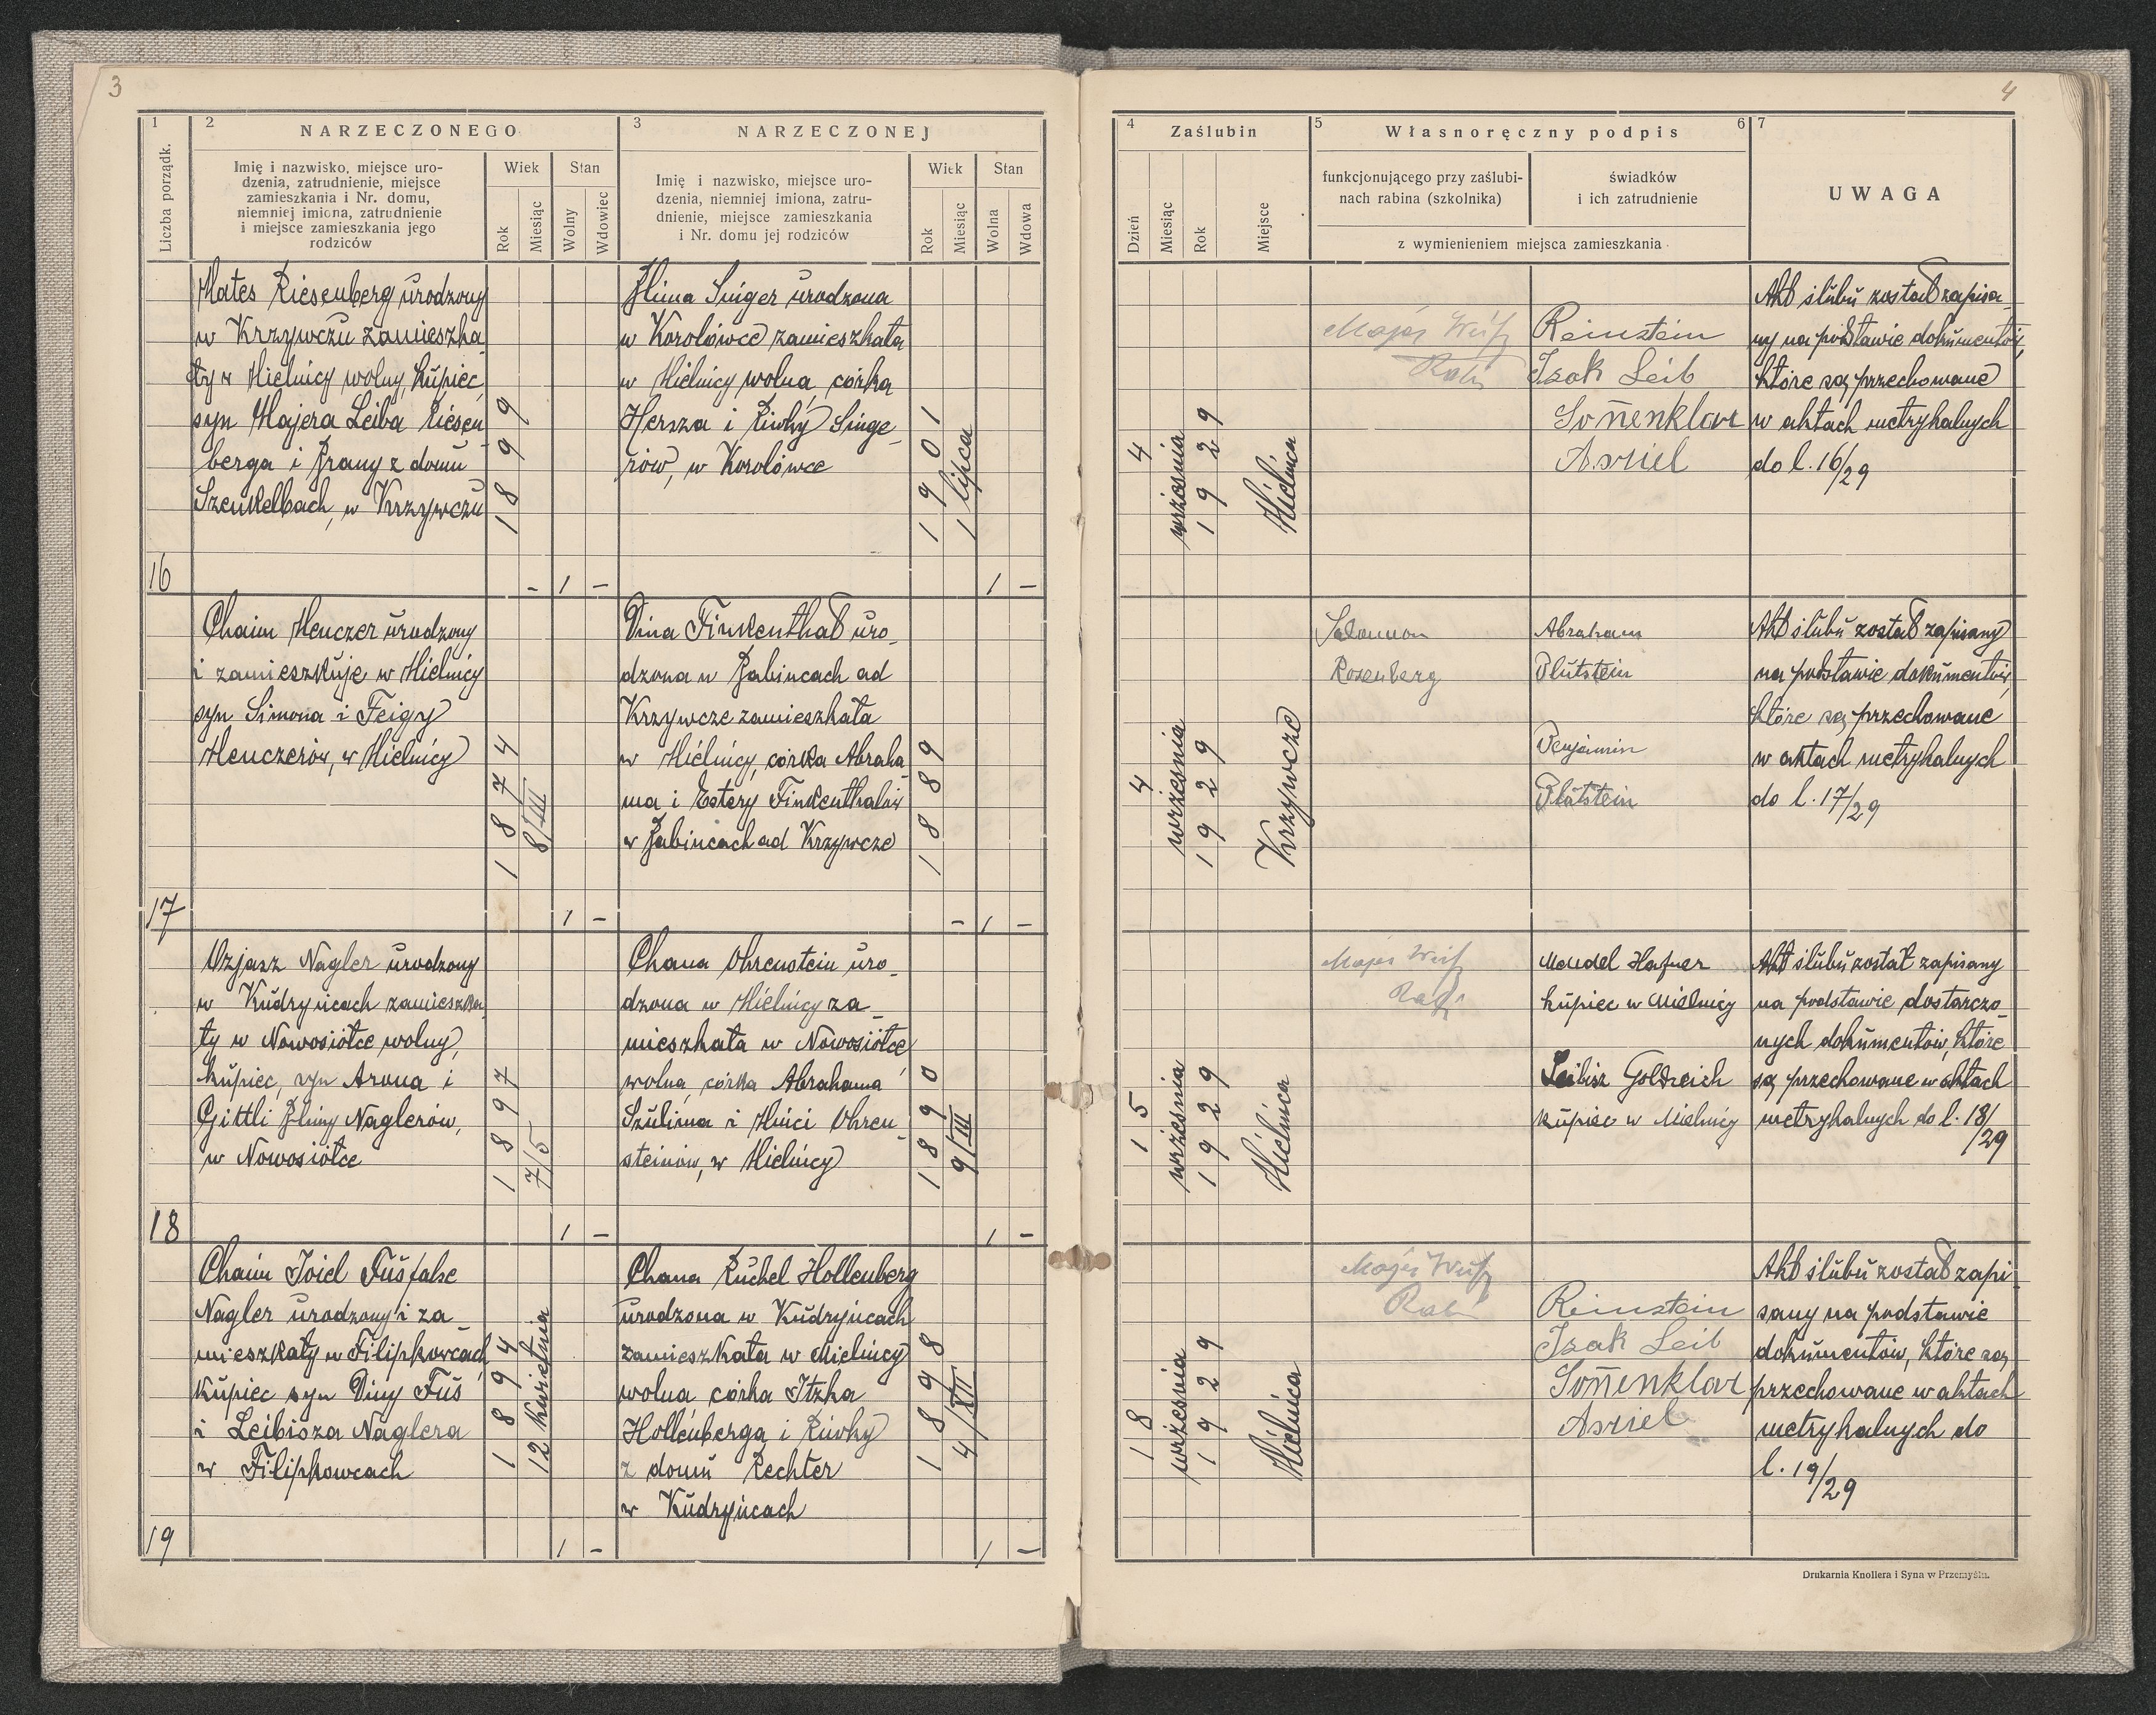 3
4
1
Liczba porządk.
2
NARZECZONEGO
Imię i nazwisko, miejsce uro-
dzenia, zatrudnienie, miejsce
zamieszkania i Nr. domu,
niemniej imiona, zatrudnienie
i miejsce zamieszkania jego
rodziców
Wiek
Rok
Miesiąc
Stan
Wolny
Wdowiec
3
NARZECZONEJ
Imię i nazwisko, miejsce uro-
dzenia, niemniej imiona, zatru-
dnienie, miejsce zamieszkania
i Nr. domu jej rodziców
Wiek
Rok
Miesiąc
Stan
Wolna
Wdowa
4
Zaślubin
Dzień
Miesiąc
Rok
Miejsce
5
Własnoręczny podpis
6
funkcjonującego przy zaślubi-
nach rabina (szkolnika)
świadków
i ich zatrudnienie
z wymienieniem miejsca zamieszkania
7
UWAGA
16
Mates Riesenberg urodzony
w Krzywczu zamieszka
ły w Mielnicy wolny, kupiec,
syn Majera Leiba Riesen
berga i Brany z domu
Szenkelbach, w Krzywczu
1899
- 1 -
Slima Singer urodzona
w Korolówce zamieszkała
w Mielnicy wolna, córka
Hersza i Riwky Singe_
rów, w Korolówce
1901
1 lipca
1 -
4
września
1929
Mielnica
Majer
Rabi
Reinstein
Izak Leib
Sonenklar
Asriel
Akt ślubu został zapisa_
ny na podstawie dokumentów,
które są przechowane
w aktach metrykalnych
do l. 16/29
17
Chaim Henczer urodzony
i zamieszkuje w Mielnicy
syn Simona i Feigy
Henczerów, w Mielnicy
1874
8/III
1 -
Dina Finkenthal uro_
dzona w Babincach ad
Krzywcze zamieszkała
w Mielnicy, córka Abraha_
ma i Estery Finkenthalów
w Babincach ad Krzywcze
1889
- 1 -
4
września
1929
Krzywcze
Salomon
Rosenberg
Abraham
Blutstein
Benjamin
Blutstein
Akt ślubu został zapisany
na podstawie dokumentów,
które są przechowane
w aktach metrykalnych
do l. 17/29
18
Ozjasz Nagler urodzony
w Kudryńcach zamieszka_
ły w Nowosiółce wolny,
kupiec, syn Arona i
Gittli Slimy Naglerów,
w Nowosiółce
1897
7/5
1 -
Chana Ohrenstein uro_
dzona w Mielnicy za_
mieszkała w Nowosiółce
wolna, córka Abrahama
Szulima i Hinci Ohren_
steinów, w Mielnicy
1890
9/III
1 -
15
września
1929
Mielnica
Majer
Rabi
Mendel Hafner
kupiec w Mielnicy
Leibisz Goldreich
kupiec w Mielnicy
Akt ślubu został zapisany
na podstawie dostarczo_
nych dokumentów, które
są przechowane w aktach
metrykalnych do l. 18/29
19
Chaim Joiel Fuś false
Nagler urodzony i za_
mieszkały w Filipkowcach
kupiec syn Diny Fuś
i Leibisza Naglera
w Filipkowcach
1894
12 kwietnia
1 -
Chana Ruchel Hollenberg
urodzona w Kudryńcach
zamieszkała w Mielnicy
wolna córka Itzka
Hollenberga i Riwky
z domu Rechter
w Kudryńcach
1898
4/XII
1 -
18
września
1929
Mielnica
Majer
Rabi
Reinstein
Izak Leib
Sonenklar
Asriel
Akt ślubu został zapi_
sany na podstawie
dokumentów, które są
przechowane w aktach
metrykalnych do
l. 19/29
Drukarnia Knollera i Syna w Przemyślu.